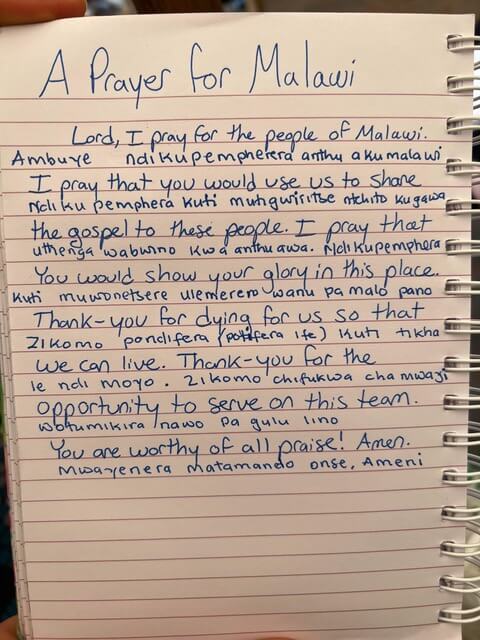 A Prayer for Malawi
Lord, I pray for the people of Malawi.
Ambuye ndikupempherera anthu aku malawi
I pray that you would use us to share
Ndiku pemphera kuti mutigwiritse ntchito kugawa
the gospel to these people. I pray that
uthenga wabwino kwa anthu awa. Ndikupemphera
You would show your glory in this place.
kuti muwonetsere ulemerero wanu pa malo pano
Thank-you for dying for us so that
Zikomo pondifera (potifera ife) kuti tikha
we can live. Thank-you for the
le ndi moyo. Zikomo chifukwa cha mwayi
opportunity to serve on this team.
wotumikira nawo pa gulu lino
You are worthy of all praise! Amen.
Mwayenera matamando onse, Ameni